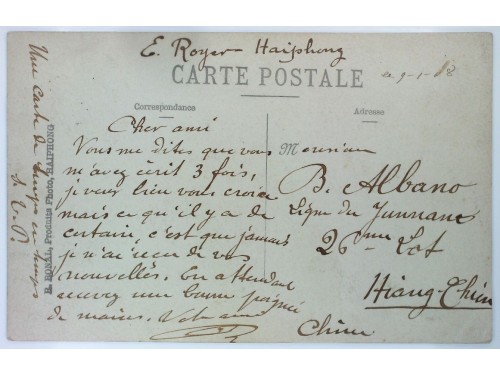 E. Royer Haiphong
CARTE POSTALE
Correspondance
Adresse
Cher ami
Vous me dites que vous
m'avez écrit 3 fois,
je veux bien vous croire
mais ce qu'il y a de
certain, c'est que jamais
je n'ai reçu de vos
nouvelles. En attendant
recevez une bonne poignée
de mains. Votre ami
Monsieur
B. Albano
Ligne du Yunnam
26ème Lot
Hiang-Chuin
Chine
Une carte de temps en temps
S. V. P.
R. BONAL, Produits Photo, HAIPHONG